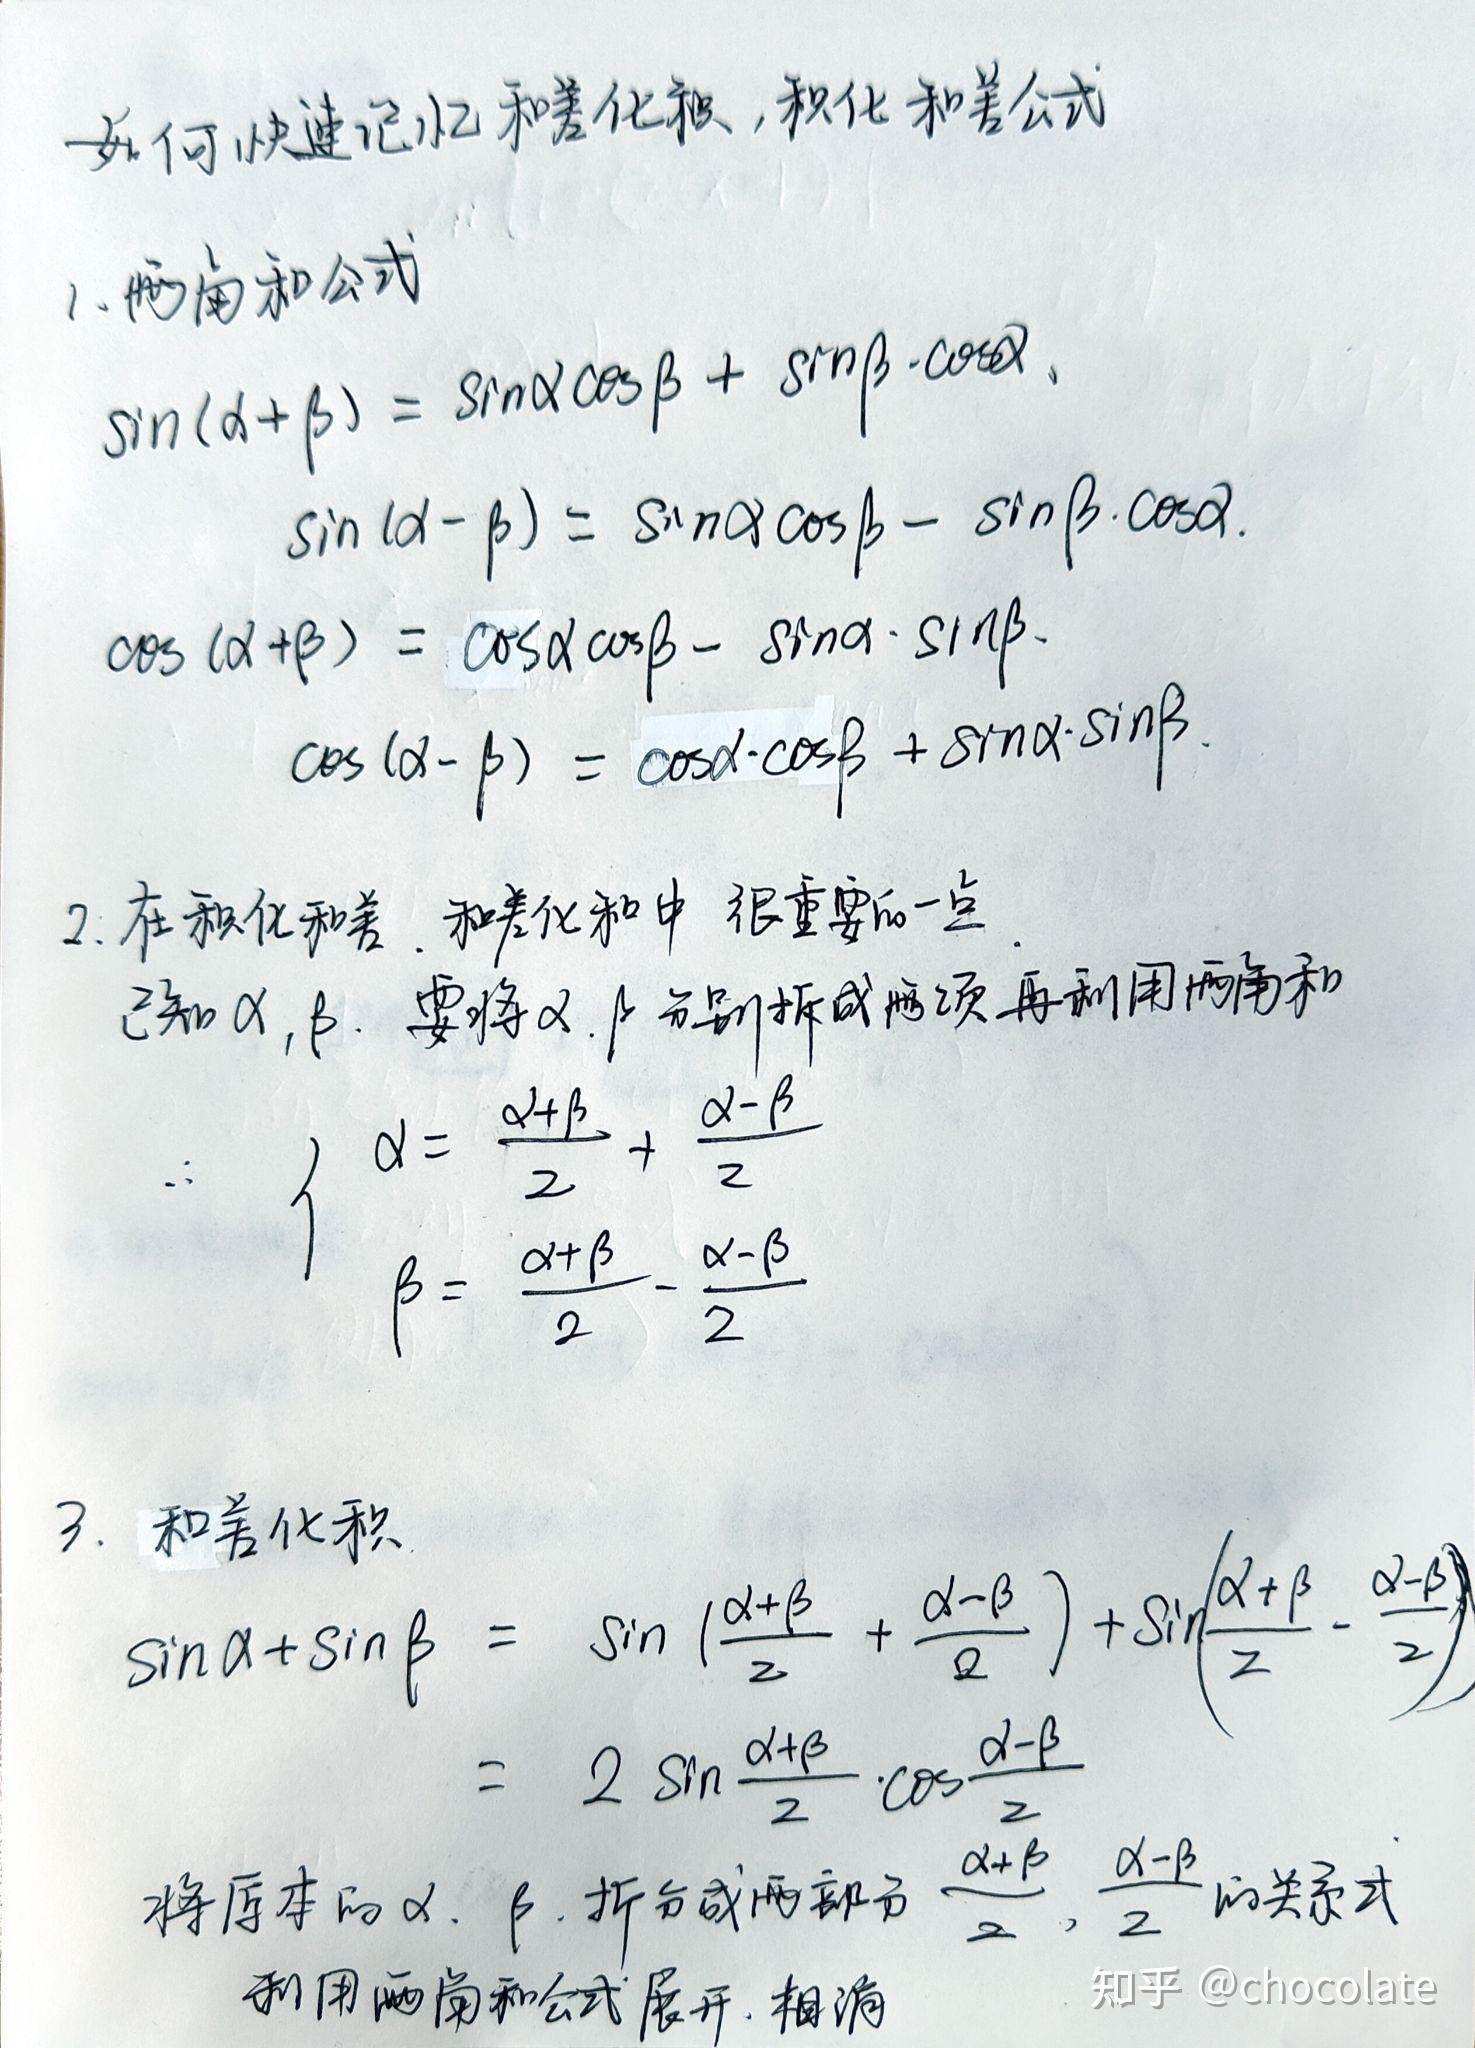 如何快速记忆和差化积，积化和差公式
1、两角和公式
sin(α+β) = sinαcosβ + sinβ·cosα、
sin(α-β) = sinαcosβ - sinβ·cosα.
cos(α+β) = cosαcosβ - sinα·sinβ.
cos(α-β) = cosα·cosβ + sinα·sinβ.
2. 在积化和差、和差化和中 很重要的一点.
已知α,β. 要将α、β分别拆成两项再利用两角和
∴ { α = (α+β)/2 + (α-β)/2
β = (α+β)/2 - (α-β)/2
3. 和差化积
sinα+sinβ = sin((α+β)/2 + (α-β)/2) + sin((α+β)/2 - (α-β)/2)
= 2 sin (α+β)/2 ·cos (α-β)/2
将原本的α、β.拆分成两部分 (α+β)/2, (α-β)/2 的关系式
利用两角和公式展开.相消
知乎 @chocolate